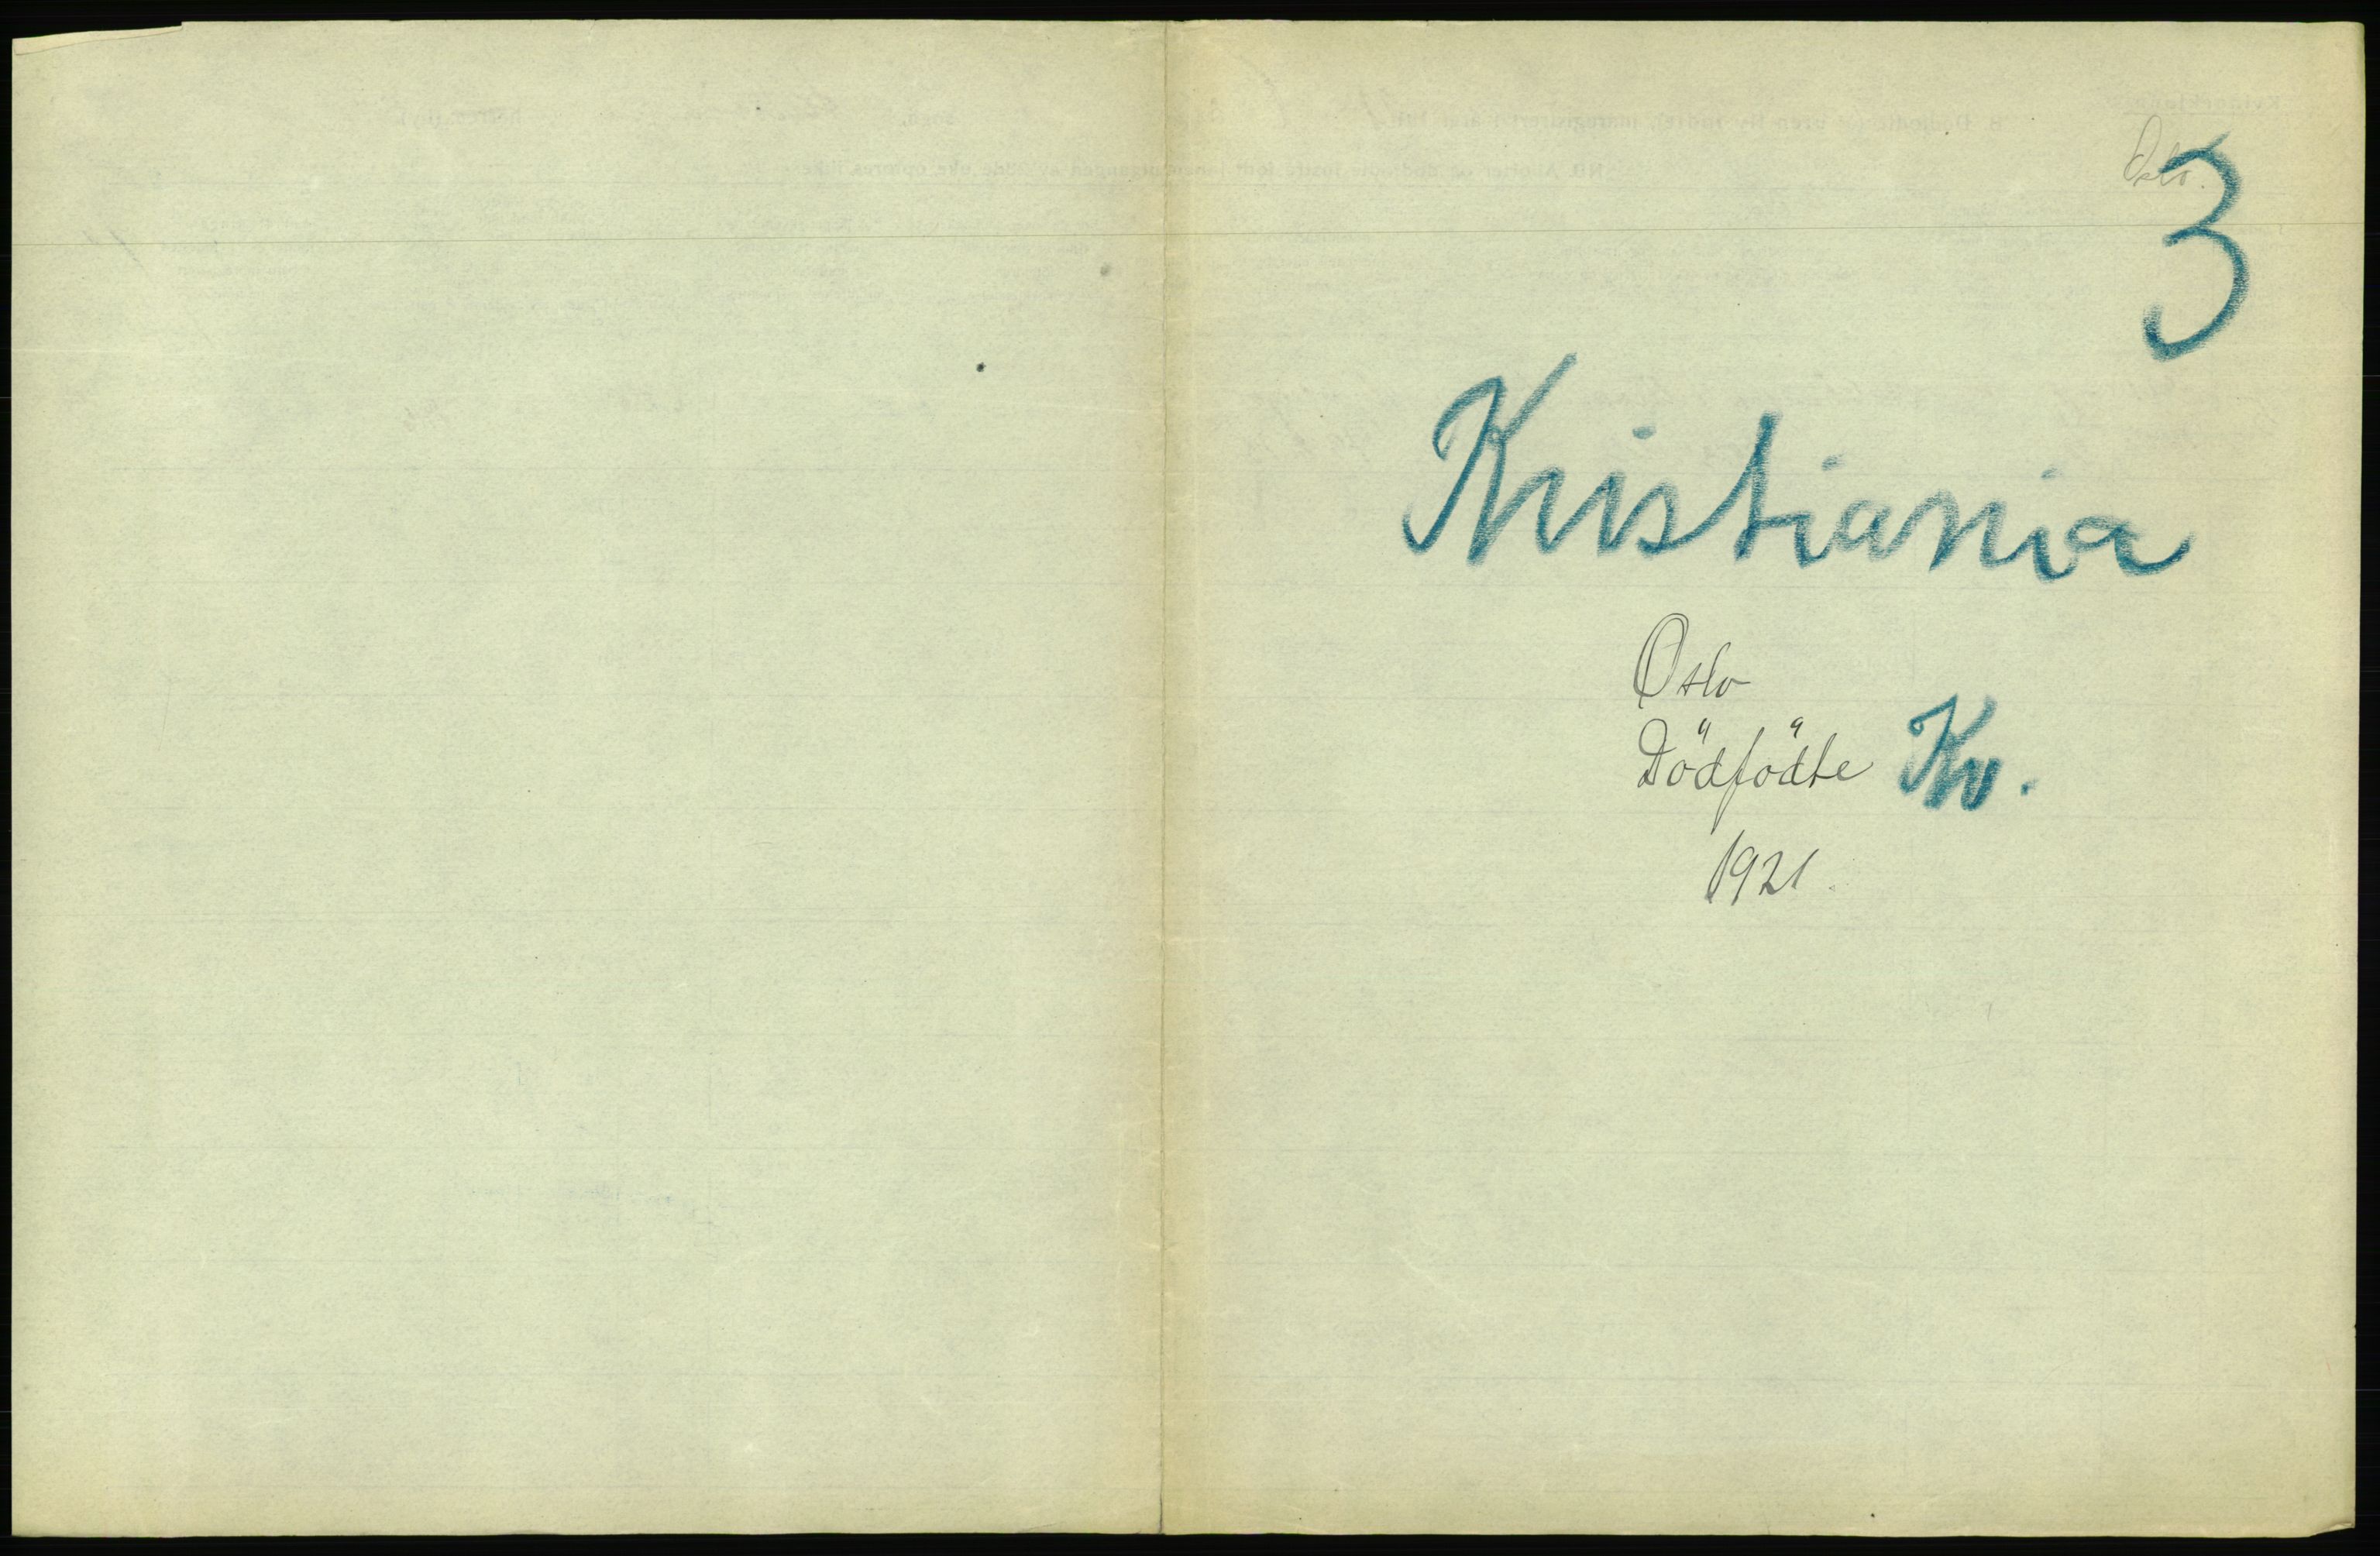 Oslo.
3
Kristiania
Oslo
Dödfödte Kv.
1921.